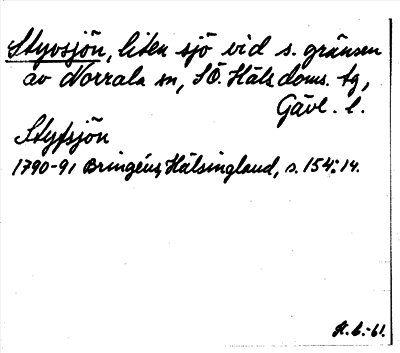 Styvsjön, liten sjö vid s. gränsen
av Norrala sn, SÖ. Häls. doms. tg,
Gävl. l.
Styfsjön
1790-91 Bringéus, Hälsingland, s. 154:14.
H. b.-61.